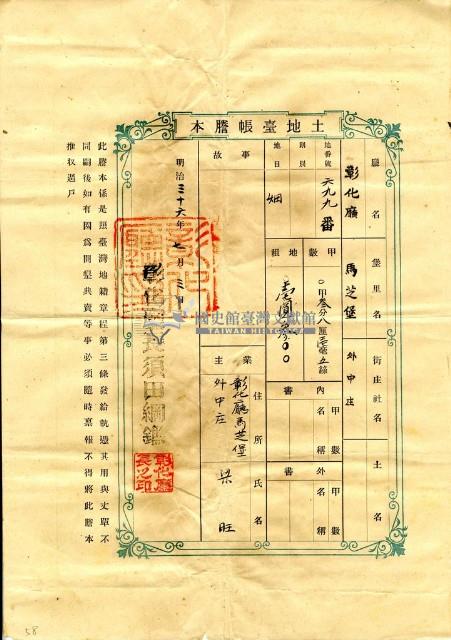 土地臺帳謄本
廳名
彰化廳
堡里名
馬芝堡
街庄社名
外中庄
土名
地番號
六九九番
則別
地目
畑
甲數
〇甲叁分八厘
地租
壹圓
〇〇
內書
甲數
名稱
外書
甲數
名稱
事故
業主
住所
彰化廳馬芝堡
外中庄
氏名
梁旺
明治三十六年七月三日
彰化廳長須田綱鑑
彰化廳長之印
此謄本係是照臺灣地籍章程第三條發給執憑其用與丈單不
同嗣後如有因為開墾典賣等事必須隨時稟報不得將此謄本
推收過戶
國史館臺灣文獻館
TAIWAN HISTORICA
58